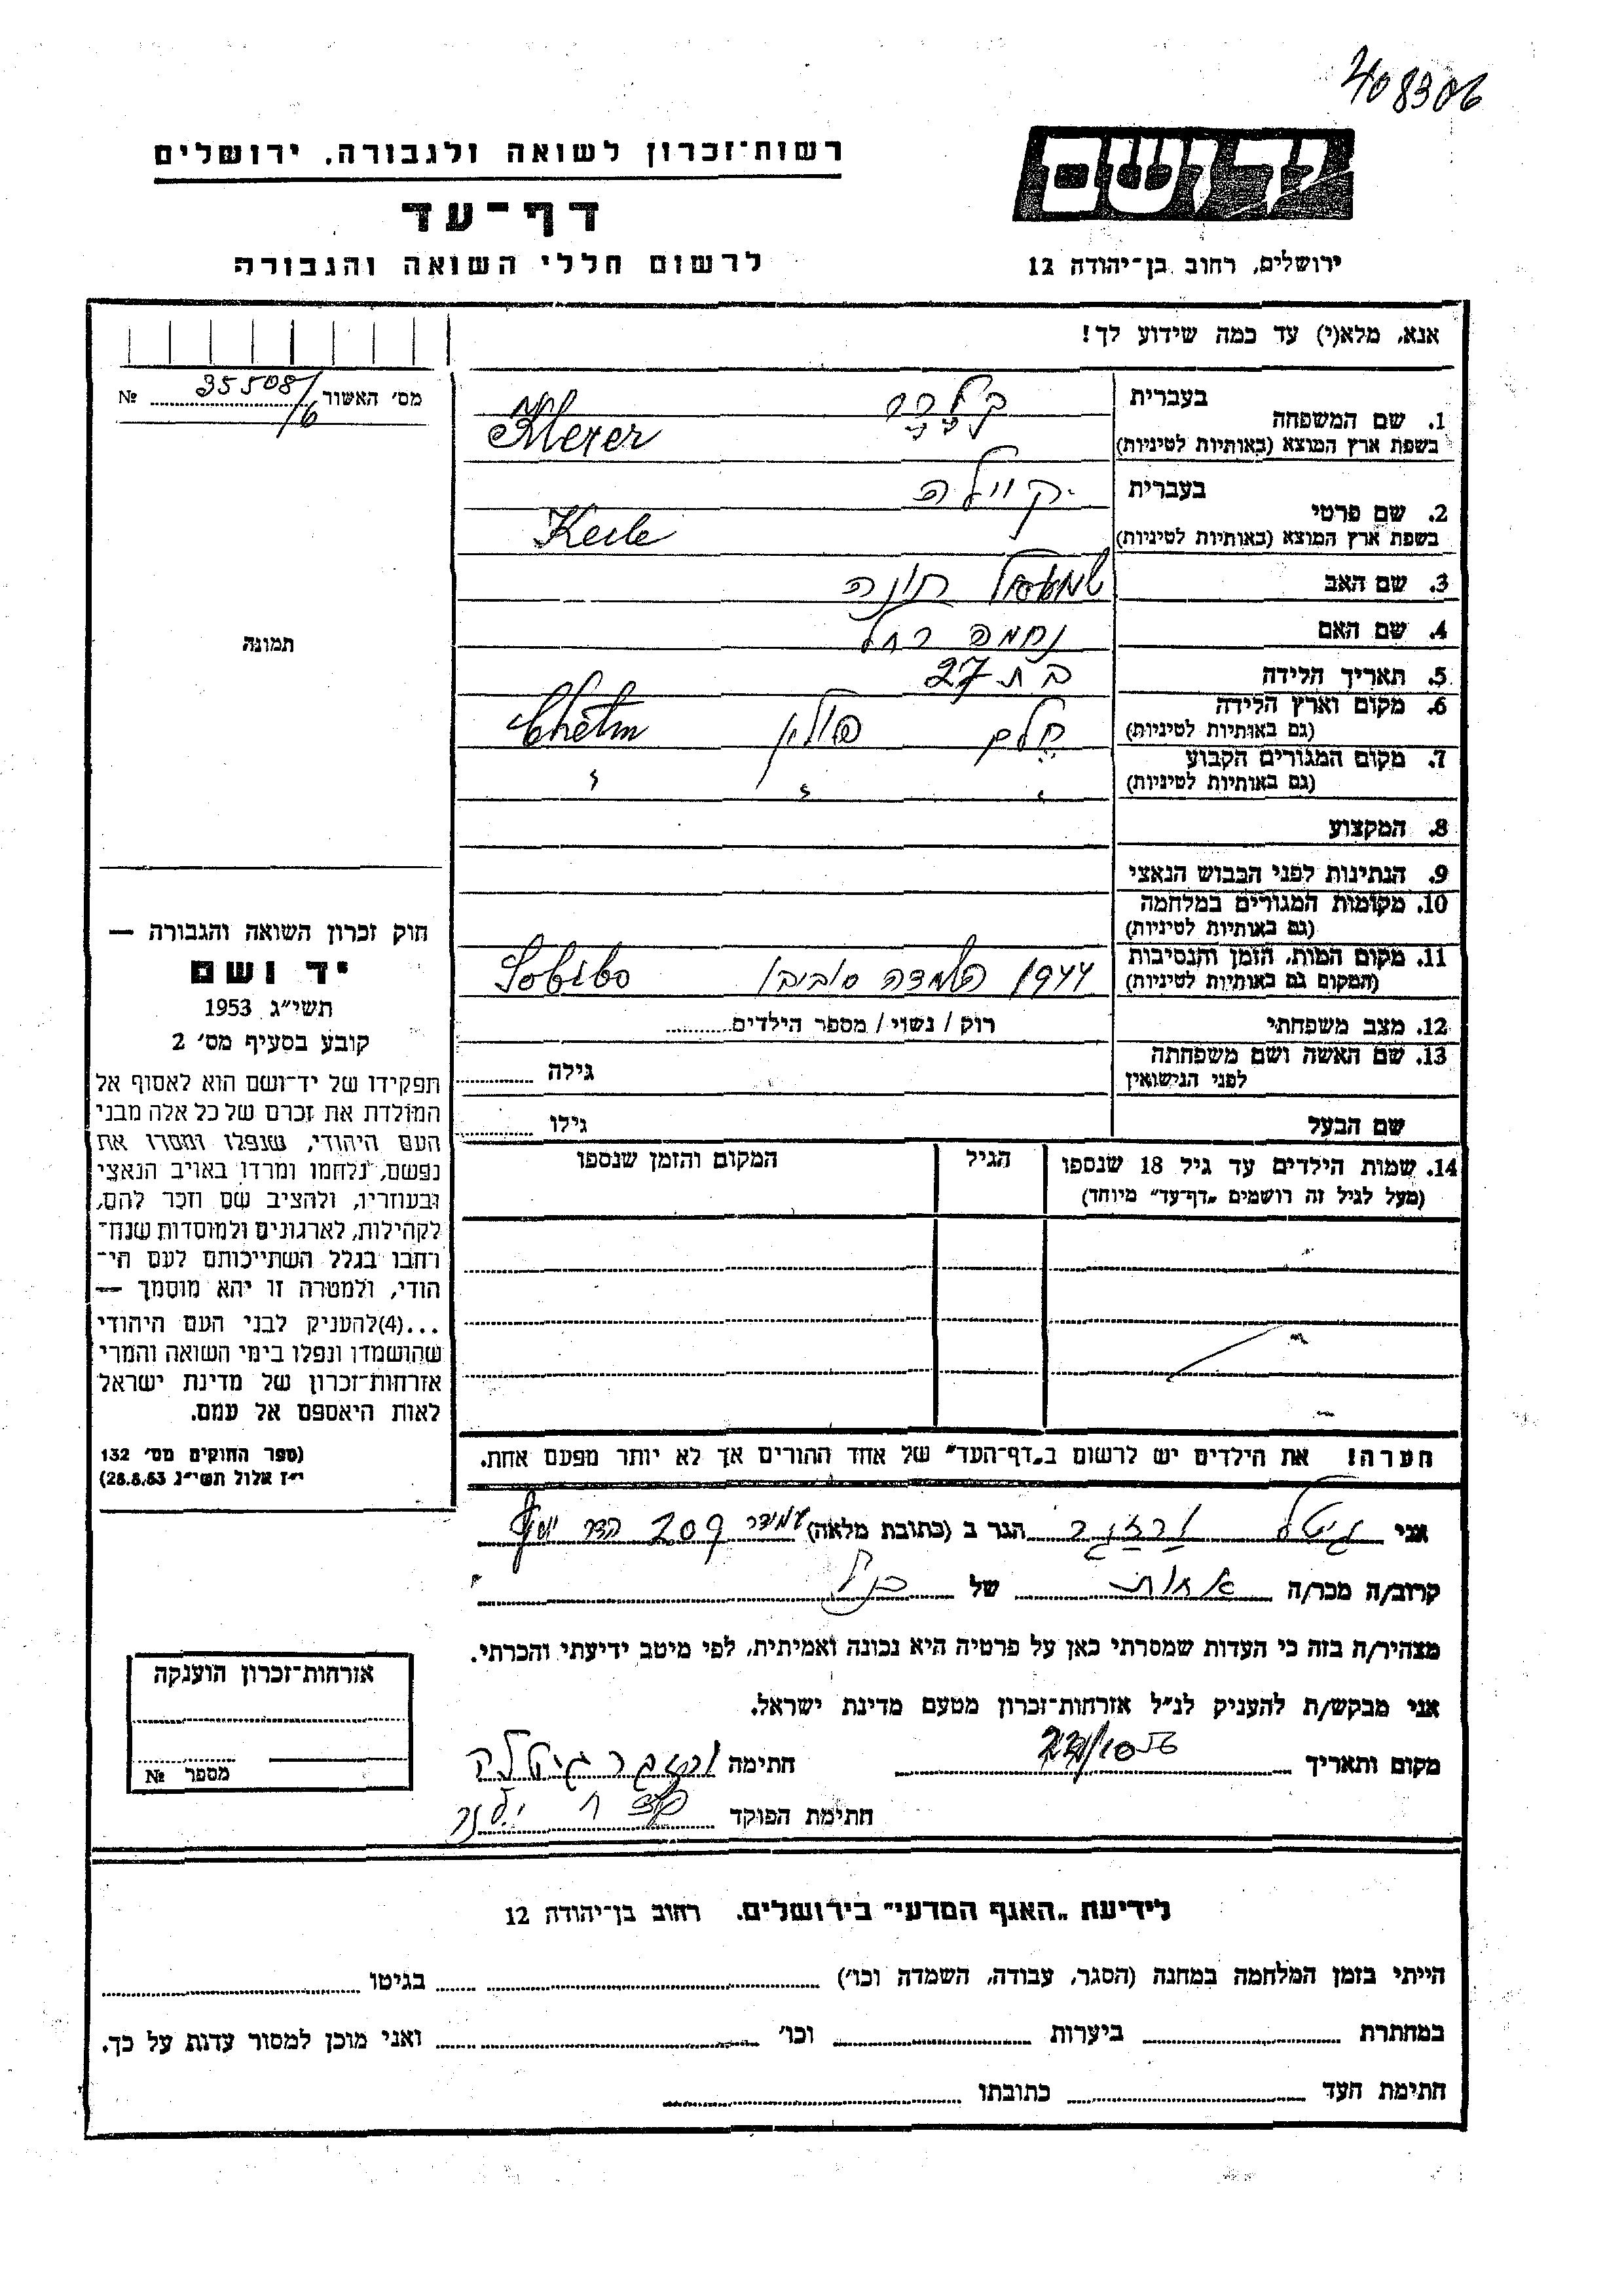 408306
רשות־זכרון לשואה ולגבורה, ירושלים
ידושם
דף־עד
לרשום חללי השואה והגבורה
ירושלים, רחוב בן־יהודה 12
אנא, מלא(י) עד כמה שידוע לך!
מס׳ האשור 35508/16 №
1. שם המשפחה
בעברית
בשפת ארץ המוצא (באותיות לטיניות)
2. שם פרטי
בעברית
בשפת ארץ המוצא (באותיות לטיניות) Keile
3. שם האב שמואל חונה
4. שם האם נחמה רחל
5. תאריך הלידה בת 27
6. מקום וארץ הלידה
(גם באותיות לטיניות) חלם פולין Chełm
7. מקום המגורים הקבוע
(גם באותיות לטיניות)
8. המקצוע
9. הנתינות לפני הכבוש הנאצי
10. מקומות המגורים במלחמה
(גם באותיות לטיניות)
11. מקום המות, הזמן והנסיבות
(המקום גם באותיות לטיניות) 1944 השמדה סוביבו Sobibo
12. מצב משפחתי רוק / נשוי / מספר הילדים
13. שם האשה ושם משפחתה
לפני הנישואין גילה
שם הבעל גילו
14. שמות הילדים עד גיל 18 שנספו הגיל המקום והזמן שנספו
(מעל לגיל זה רושמים „דף־עד” מיוחד)
תמונה
חוק זכרון השואה והגבורה —
יד ושם
תשי״ג 1953
קובע בסעיף מס׳ 2
תפקידו של יד־ושם הוא לאסוף אל
המולדת את זכרם של כל אלה מבני
העם היהודי, שנפלו ומסרו את
נפשם, נלחמו ומרדו באויב הנאצי
ובעוזריו, ולהציב שם וזכר להם,
לקהילות, לארגונים ולמוסדות שנח־
רחבו בגלל השתייכותם לעם הי־
הודי, ולמטרה זו יהא מוסמך —
...(4)להעניק לבני העם היהודי
שהושמדו ונפלו בימי השואה והמרי
אזרחות־זכרון של מדינת ישראל
לאות היאספם אל עמם.
(ספר החוקים מס׳ 132
י״ז אלול תשי״ג 28.8.53)
הערה! את הילדים יש לרשום ב„דף־העד” של אחד ההורים אך לא יותר מפעם אחת.
אני גיטל הגר ב (כתובת מלאה) עמידר 209 הדר יוסף
קרוב/ה מכר/ה אחות של הנ״ל
מצהיר/ה בזה כי העדות שמסרתי כאן על פרטיה היא נכונה ואמיתית, לפי מיטב ידיעתי והכרתי.
אני מבקש/ת להעניק לנ״ל אזרחות־זכרון מטעם מדינת ישראל.
מקום ותאריך חתימה
חתימת הפוקד
אזרחות־זכרון הוענקה
מספר №
לידיעת „האגף המדעי” בירושלים. רחוב בן־יהודה 12
הייתי בזמן המלחמה במחנה (הסגר, עבודה, השמדה וכו׳) בגיטו
במחתרת ביערות וכו׳ ואני מוכן למסור עדות על כך.
חתימת העד כתובתו